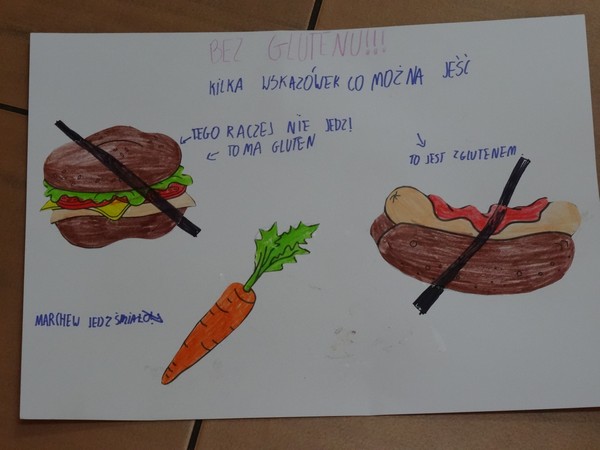 BEZ GLUTENU!!!
KILKA WSKAZÓWEK CO MOŻNA JEŚĆ
TEGO RACZEJ NIE JEDZ!
TO MA GLUTEN
TO JEST Z GLUTENEM
MARCHEW JEDZ ŚMIAŁO!